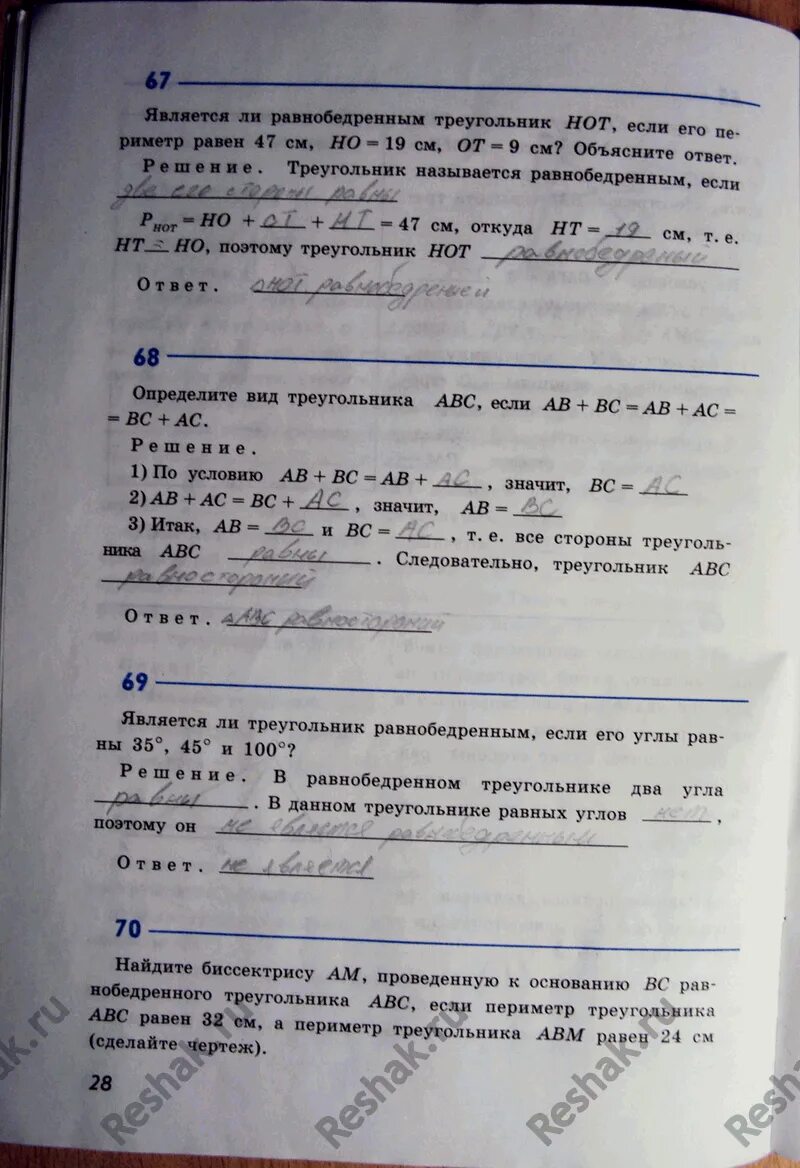 67
Является ли равнобедренным треугольник НОТ, если его пе-
риметр равен 47 см, НО = 19 см, ОТ = 9 см? Объясните ответ.
Решение. Треугольник называется равнобедренным, если
две его стороны равны
Pнот = НО + ОТ + НТ = 47 см, откуда НТ = 19 см, т. е.
НТ = НО, поэтому треугольник НОТ равнобедренный
Ответ. △НОТ равнобедренный
68
Определите вид треугольника АВС, если АВ + ВС = АВ + АС =
= ВС + АС.
Решение.
1) По условию АВ + ВС = АВ + АС, значит, ВС = АС
2) АВ + АС = ВС + АС, значит, АВ = ВС
3) Итак, АВ = ВС и ВС = АС, т. е. все стороны треуголь-
ника АВС равны. Следовательно, треугольник АВС
равносторонний
Ответ. △АВС равносторонний
69
Является ли треугольник равнобедренным, если его углы рав-
ны 35°, 45° и 100°?
Решение. В равнобедренном треугольнике два угла
равны. В данном треугольнике равных углов нет,
поэтому он не является равнобедренным
Ответ. не является
70
Найдите биссектрису АМ, проведенную к основанию ВС рав-
нобедренного треугольника АВС, если периметр треугольника
АВС равен 32 см, а периметр треугольника АВМ равен 24 см
(сделайте чертеж).
28
Reshak.ru
Reshak.ru
Reshak.ru
Reshak.ru